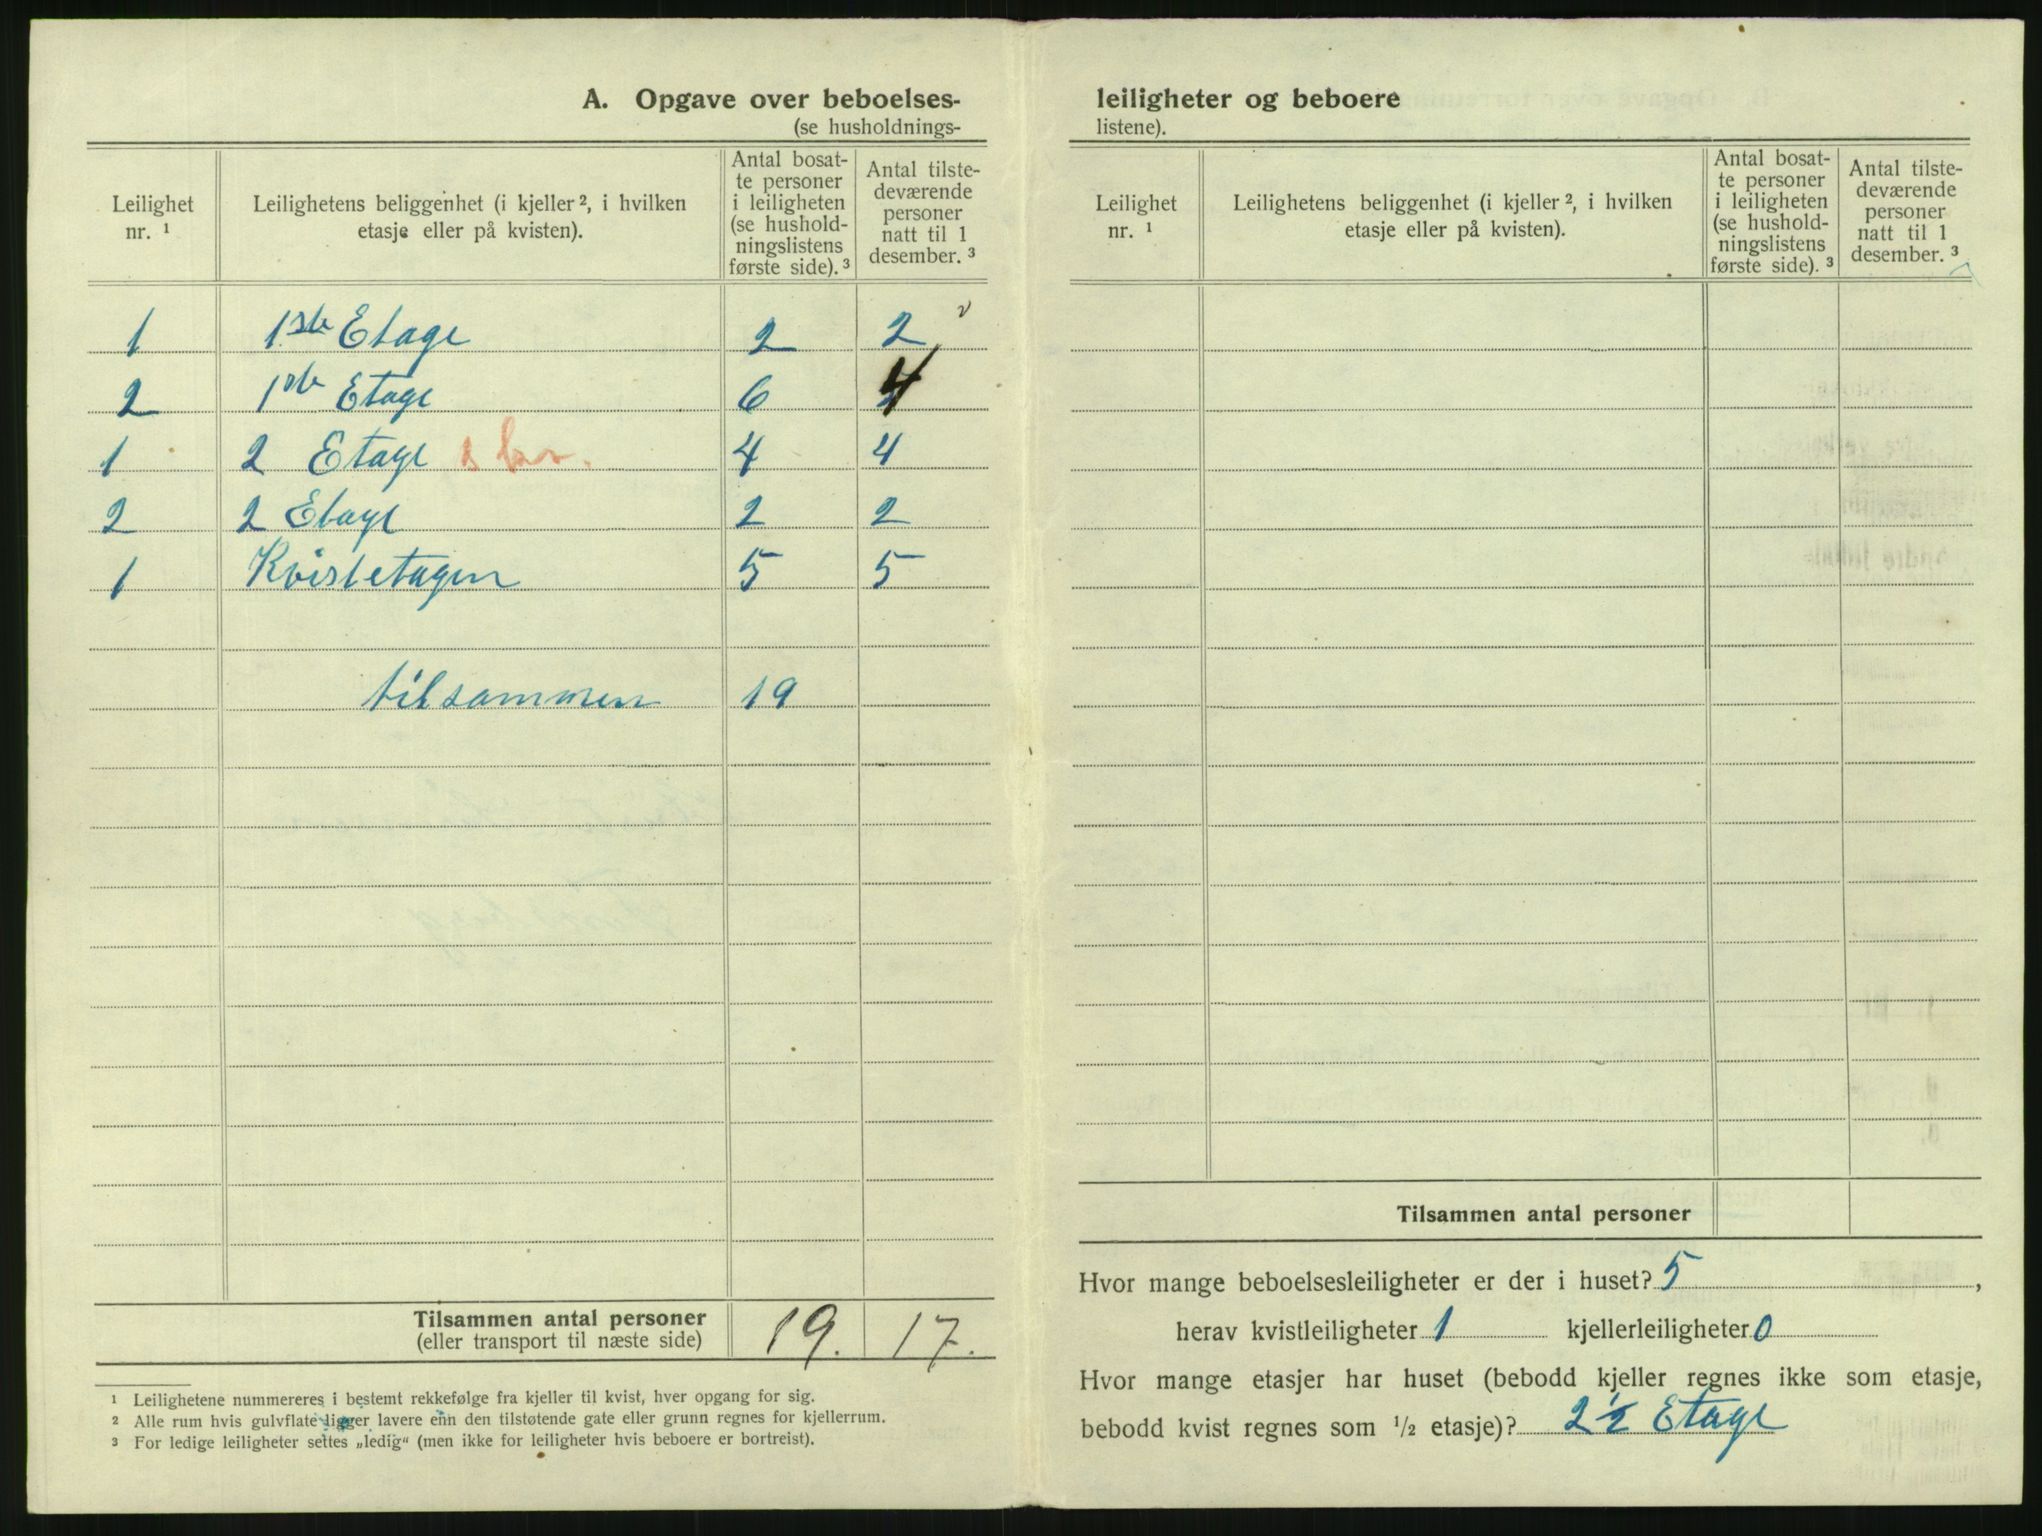 A. Opgave over beboelses-
(se husholdnings-
Leilighet nr. ¹
Leilighetens beliggenhet (i kjeller ², i hvilken etasje eller på kvisten).
Antal bosat-
te personer
i leiligheten
(se hushold-
ningslistens
første side). ³
Antal tilste-
deværende
personer
natt til 1
desember. ³
1 1ste Etage 2 2
2 1ste Etage 6 4
1 2 Etage 4 4
2 2 Etage 2 2
1 Kvistetagen 5 5
tilsammen 19
Tilsammen antal personer 19. 17.
(eller transport til næste side)
¹ Leilighetene nummereres i bestemt rekkefølge fra kjeller til kvist, hver opgang for sig.
² Alle rum hvis gulvflate ligger lavere enn den tilstøtende gate eller grunn regnes for kjellerrum.
³ For ledige leiligheter settes „ledig“ (men ikke for leiligheter hvis beboere er bortreist).
leiligheter og beboere
listene).
Leilighet nr. ¹
Leilighetens beliggenhet (i kjeller ², i hvilken etasje eller på kvisten).
Antal bosat-
te personer
i leiligheten
(se hushold-
ningslistens
første side). ³
Antal tilste-
deværende
personer
natt til 1
desember. ³
Tilsammen antal personer
Hvor mange beboelsesleiligheter er der i huset? 5,
herav kvistleiligheter 1 kjellerleiligheter 0
Hvor mange etasjer har huset (bebodd kjeller regnes ikke som etasje,
bebodd kvist regnes som ½ etasje)? 2 ½ Etage